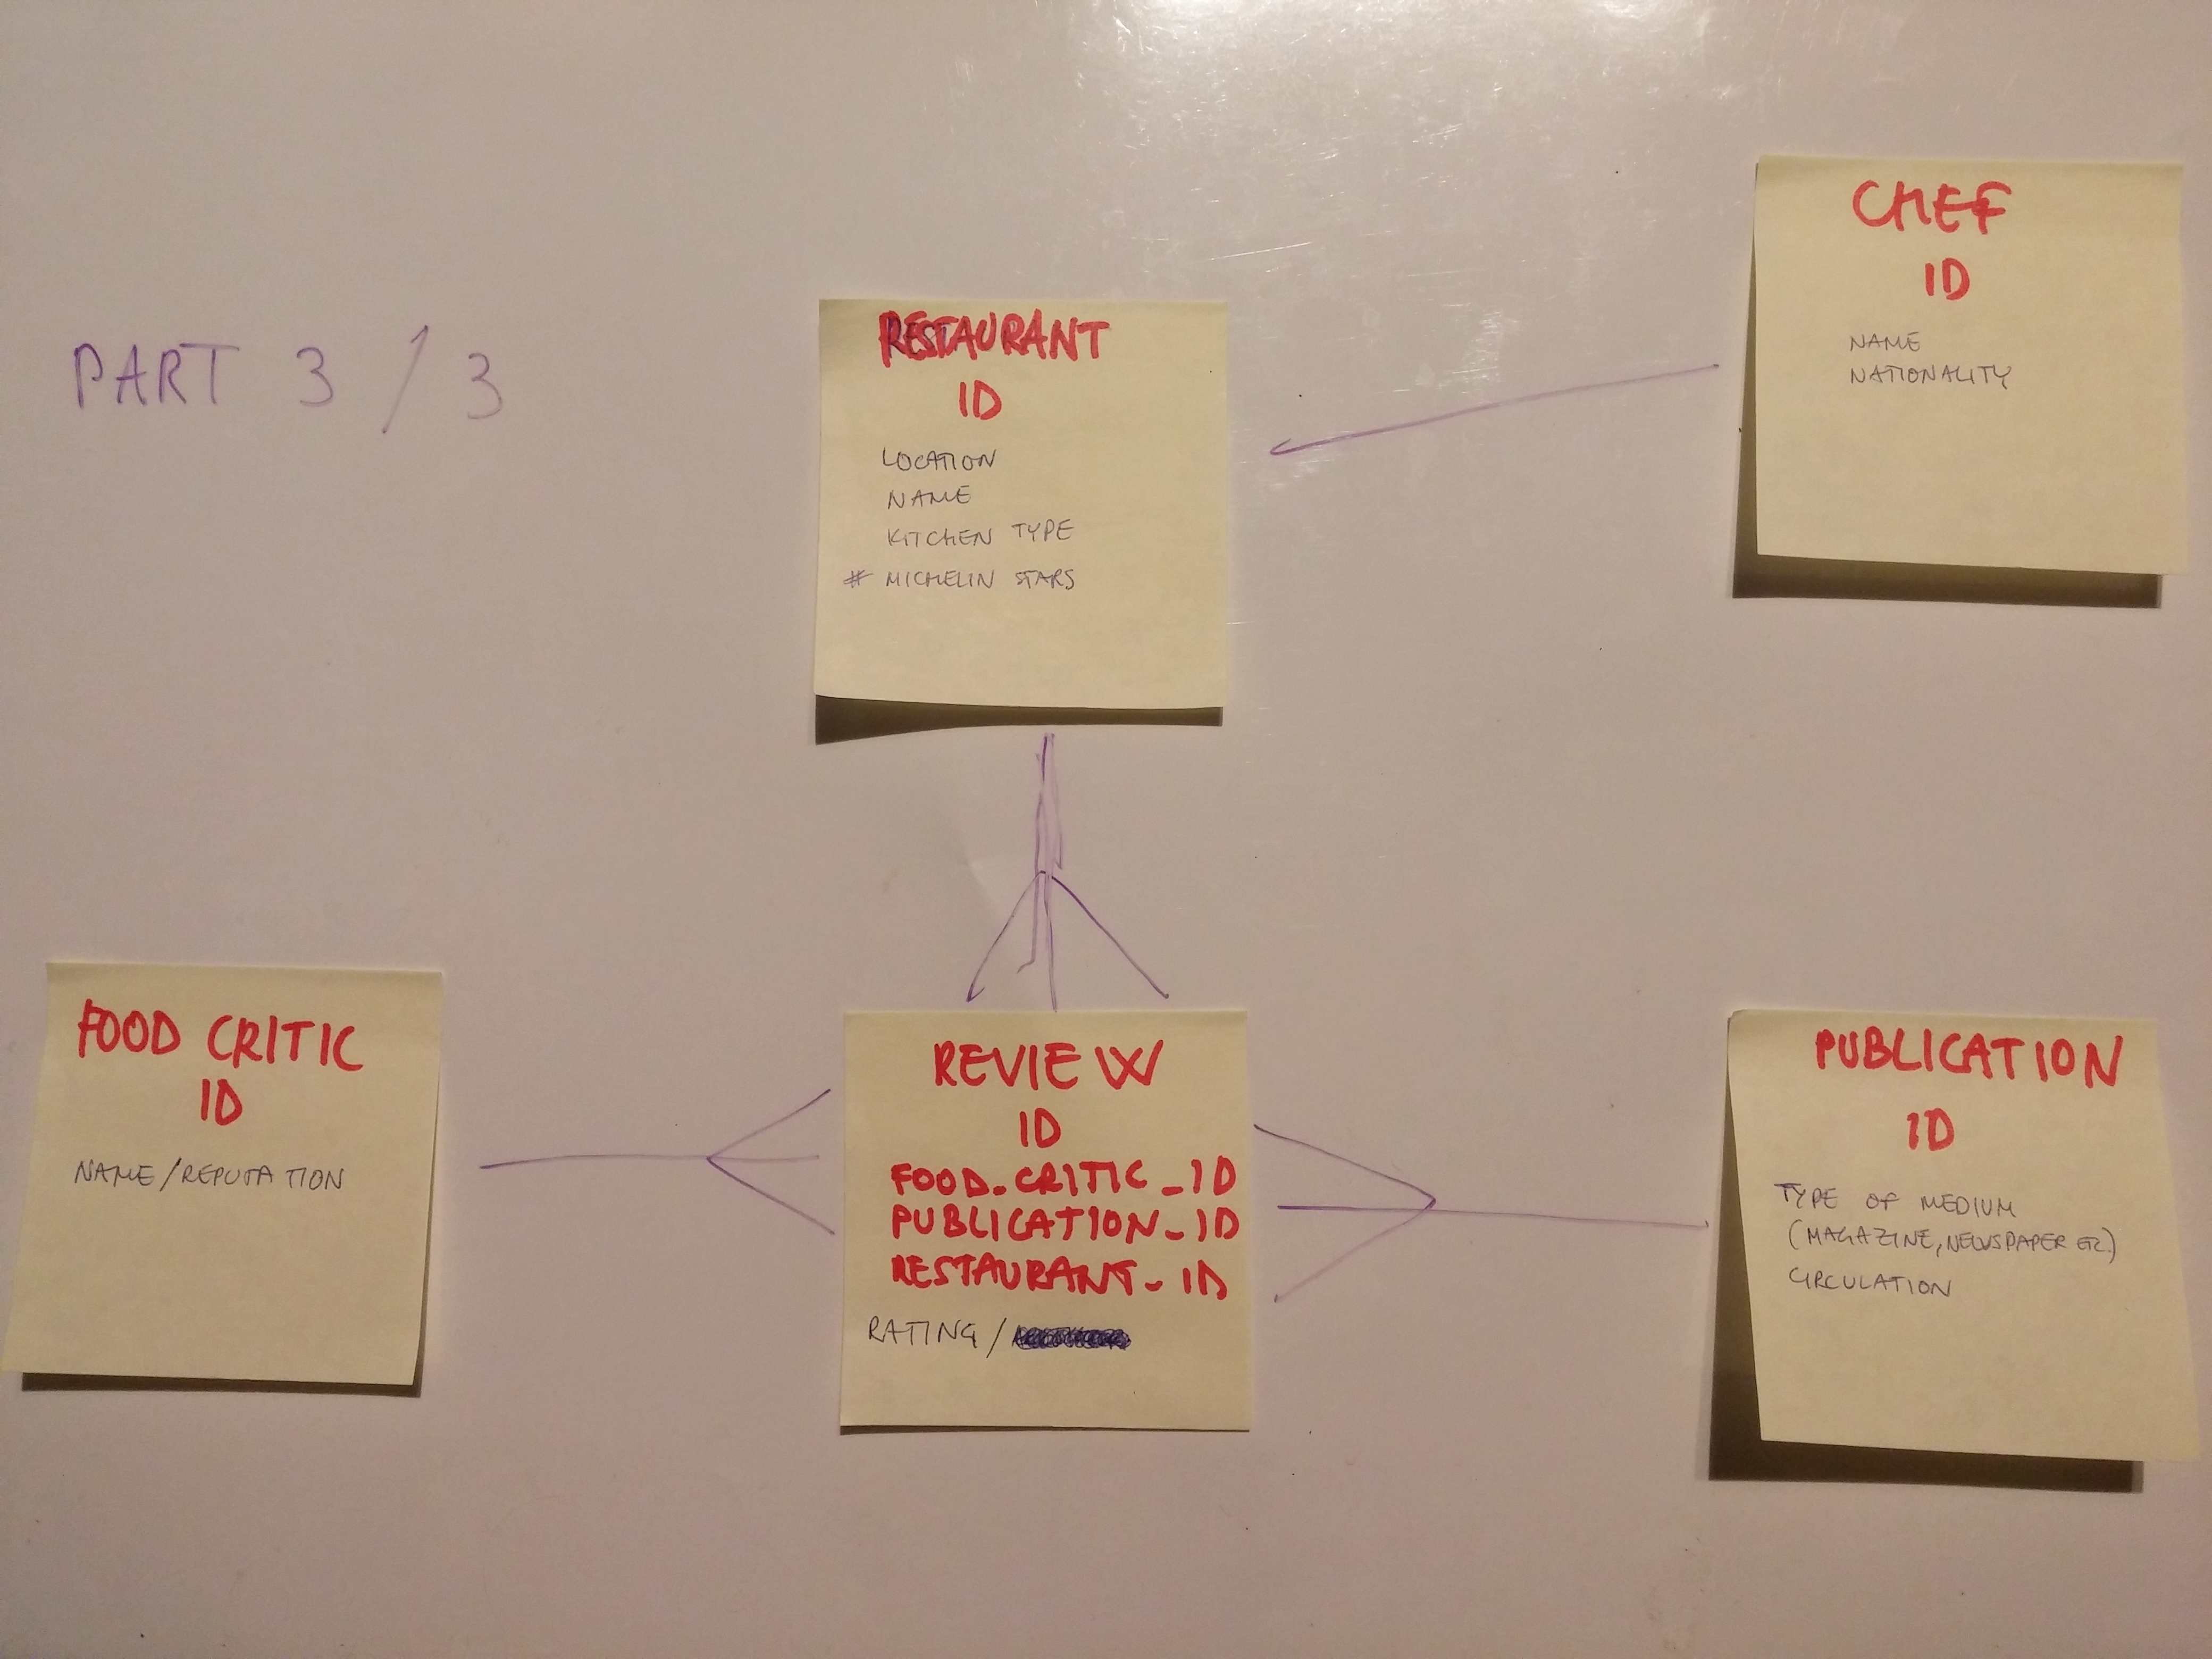 PART 3/3
RESTAURANT
ID
LOCATION
NAME
KITCHEN TYPE
# MICHELIN STARS
CHEF
ID
NAME
NATIONALITY
FOOD CRITIC
ID
NAME/REPUTATION
REVIEW
ID
FOOD_CRITIC_ID
PUBLICATION_ID
RESTAURANT_ID
RATING/
PUBLICATION
ID
TYPE OF MEDIUM
(MAGAZINE, NEWSPAPER ETC.)
CIRCULATION